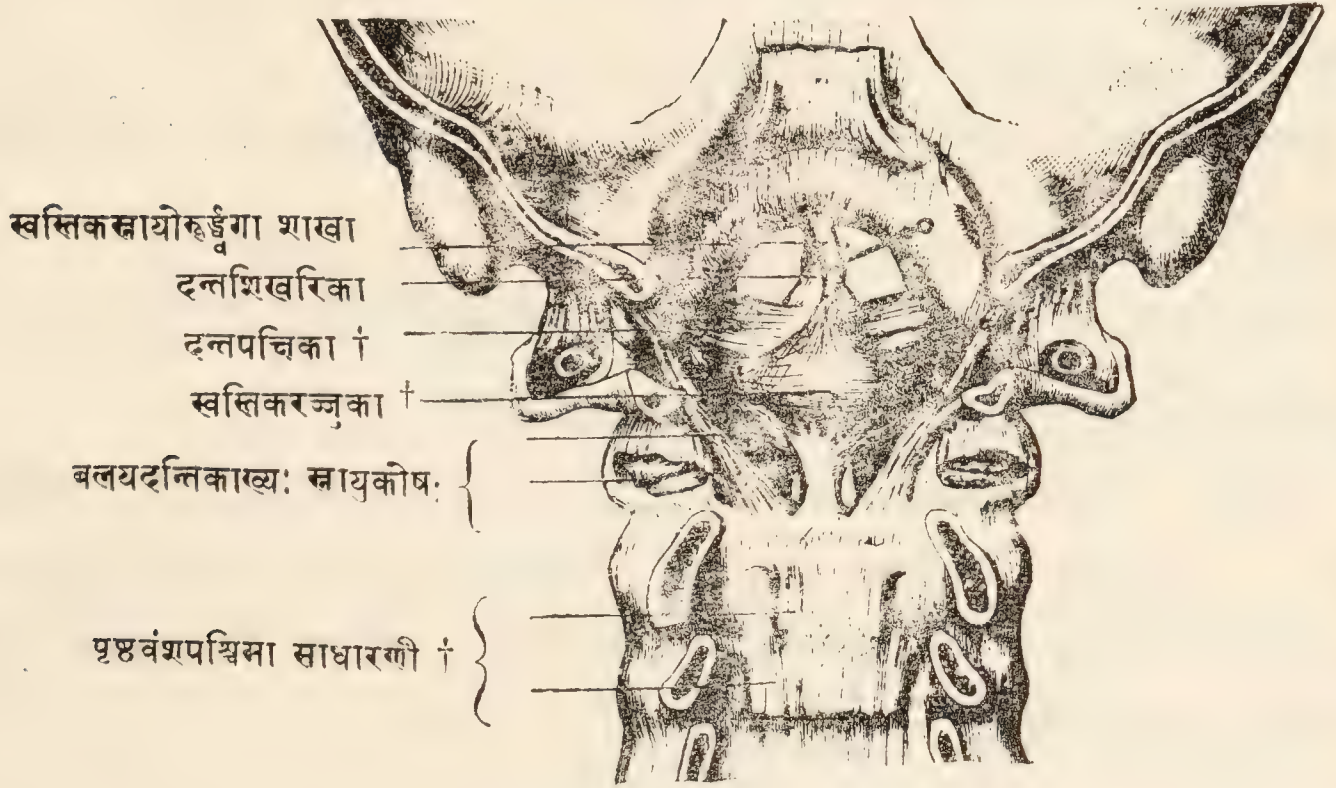 स्वस्तिकस्नायोरूर्द्ध्वगा शाखा
दन्तशिखरिका
दन्तपत्त्रिका †
स्वस्तिकरज्जुका †
बलयदन्तिकाख्यः स्नायुकोषः
पृष्ठवंशपश्चिमा साधारणी †